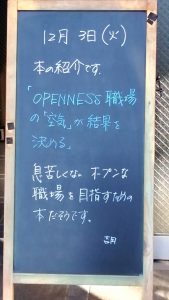 12月 3日(火)
本の紹介です.
「OPENNESS 職場
の「空気」が結果を
決める」
息苦しくない オープンな
職場を目指すための
本だそうです。